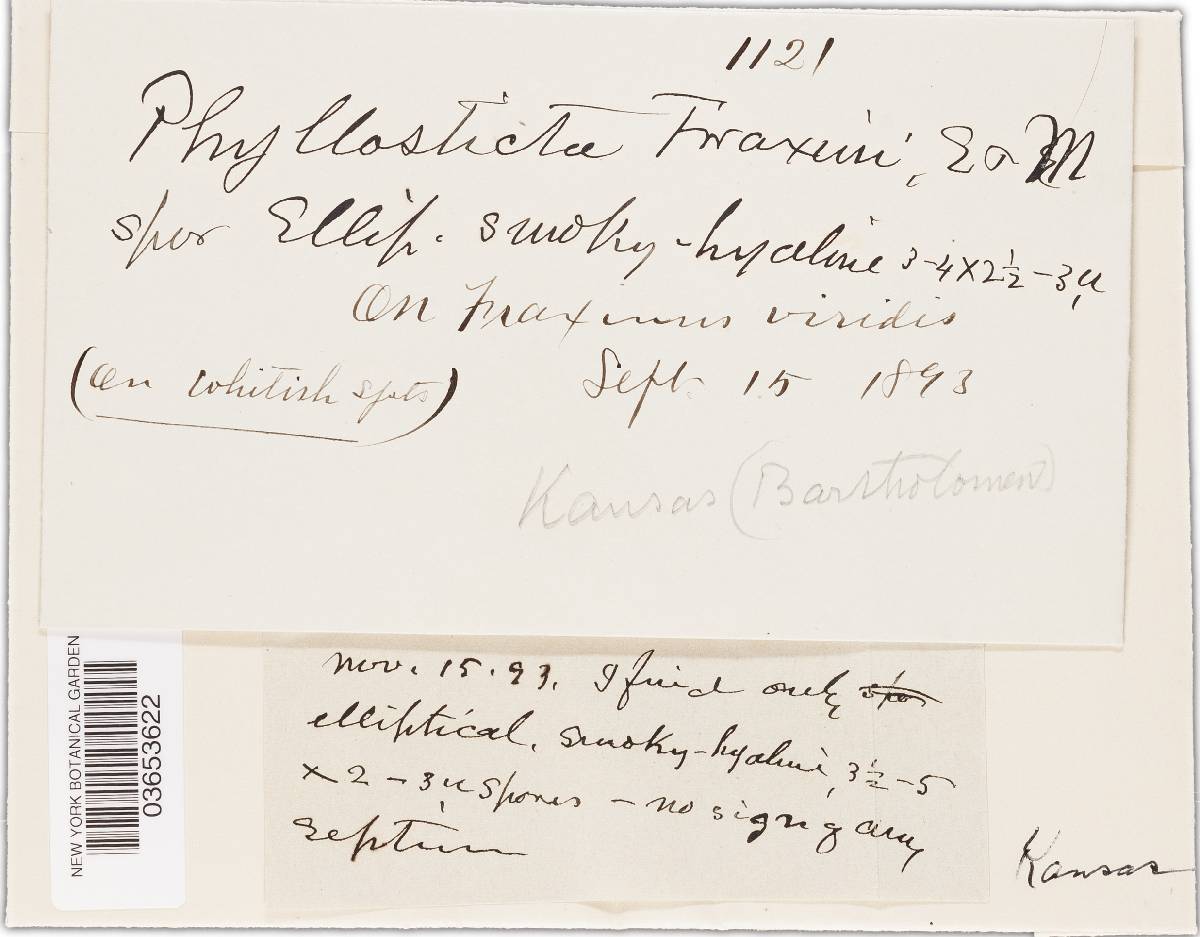 1121
Phyllosticta Fraxini, E & M
spor Ellip. smoky-hyaline 3-4x2½-3µ
On Fraxinus viridis
(on whitish spots)
Sept. 15 1893
Kansas (Bartholomew)
NEW YORK BOTANICAL GARDEN
03653622
Nov. 15. 93. I find only spor
elliptical, smoky-hyaline, 3½-5
x 2-3µ spores - no sign of any
septum
Kansas